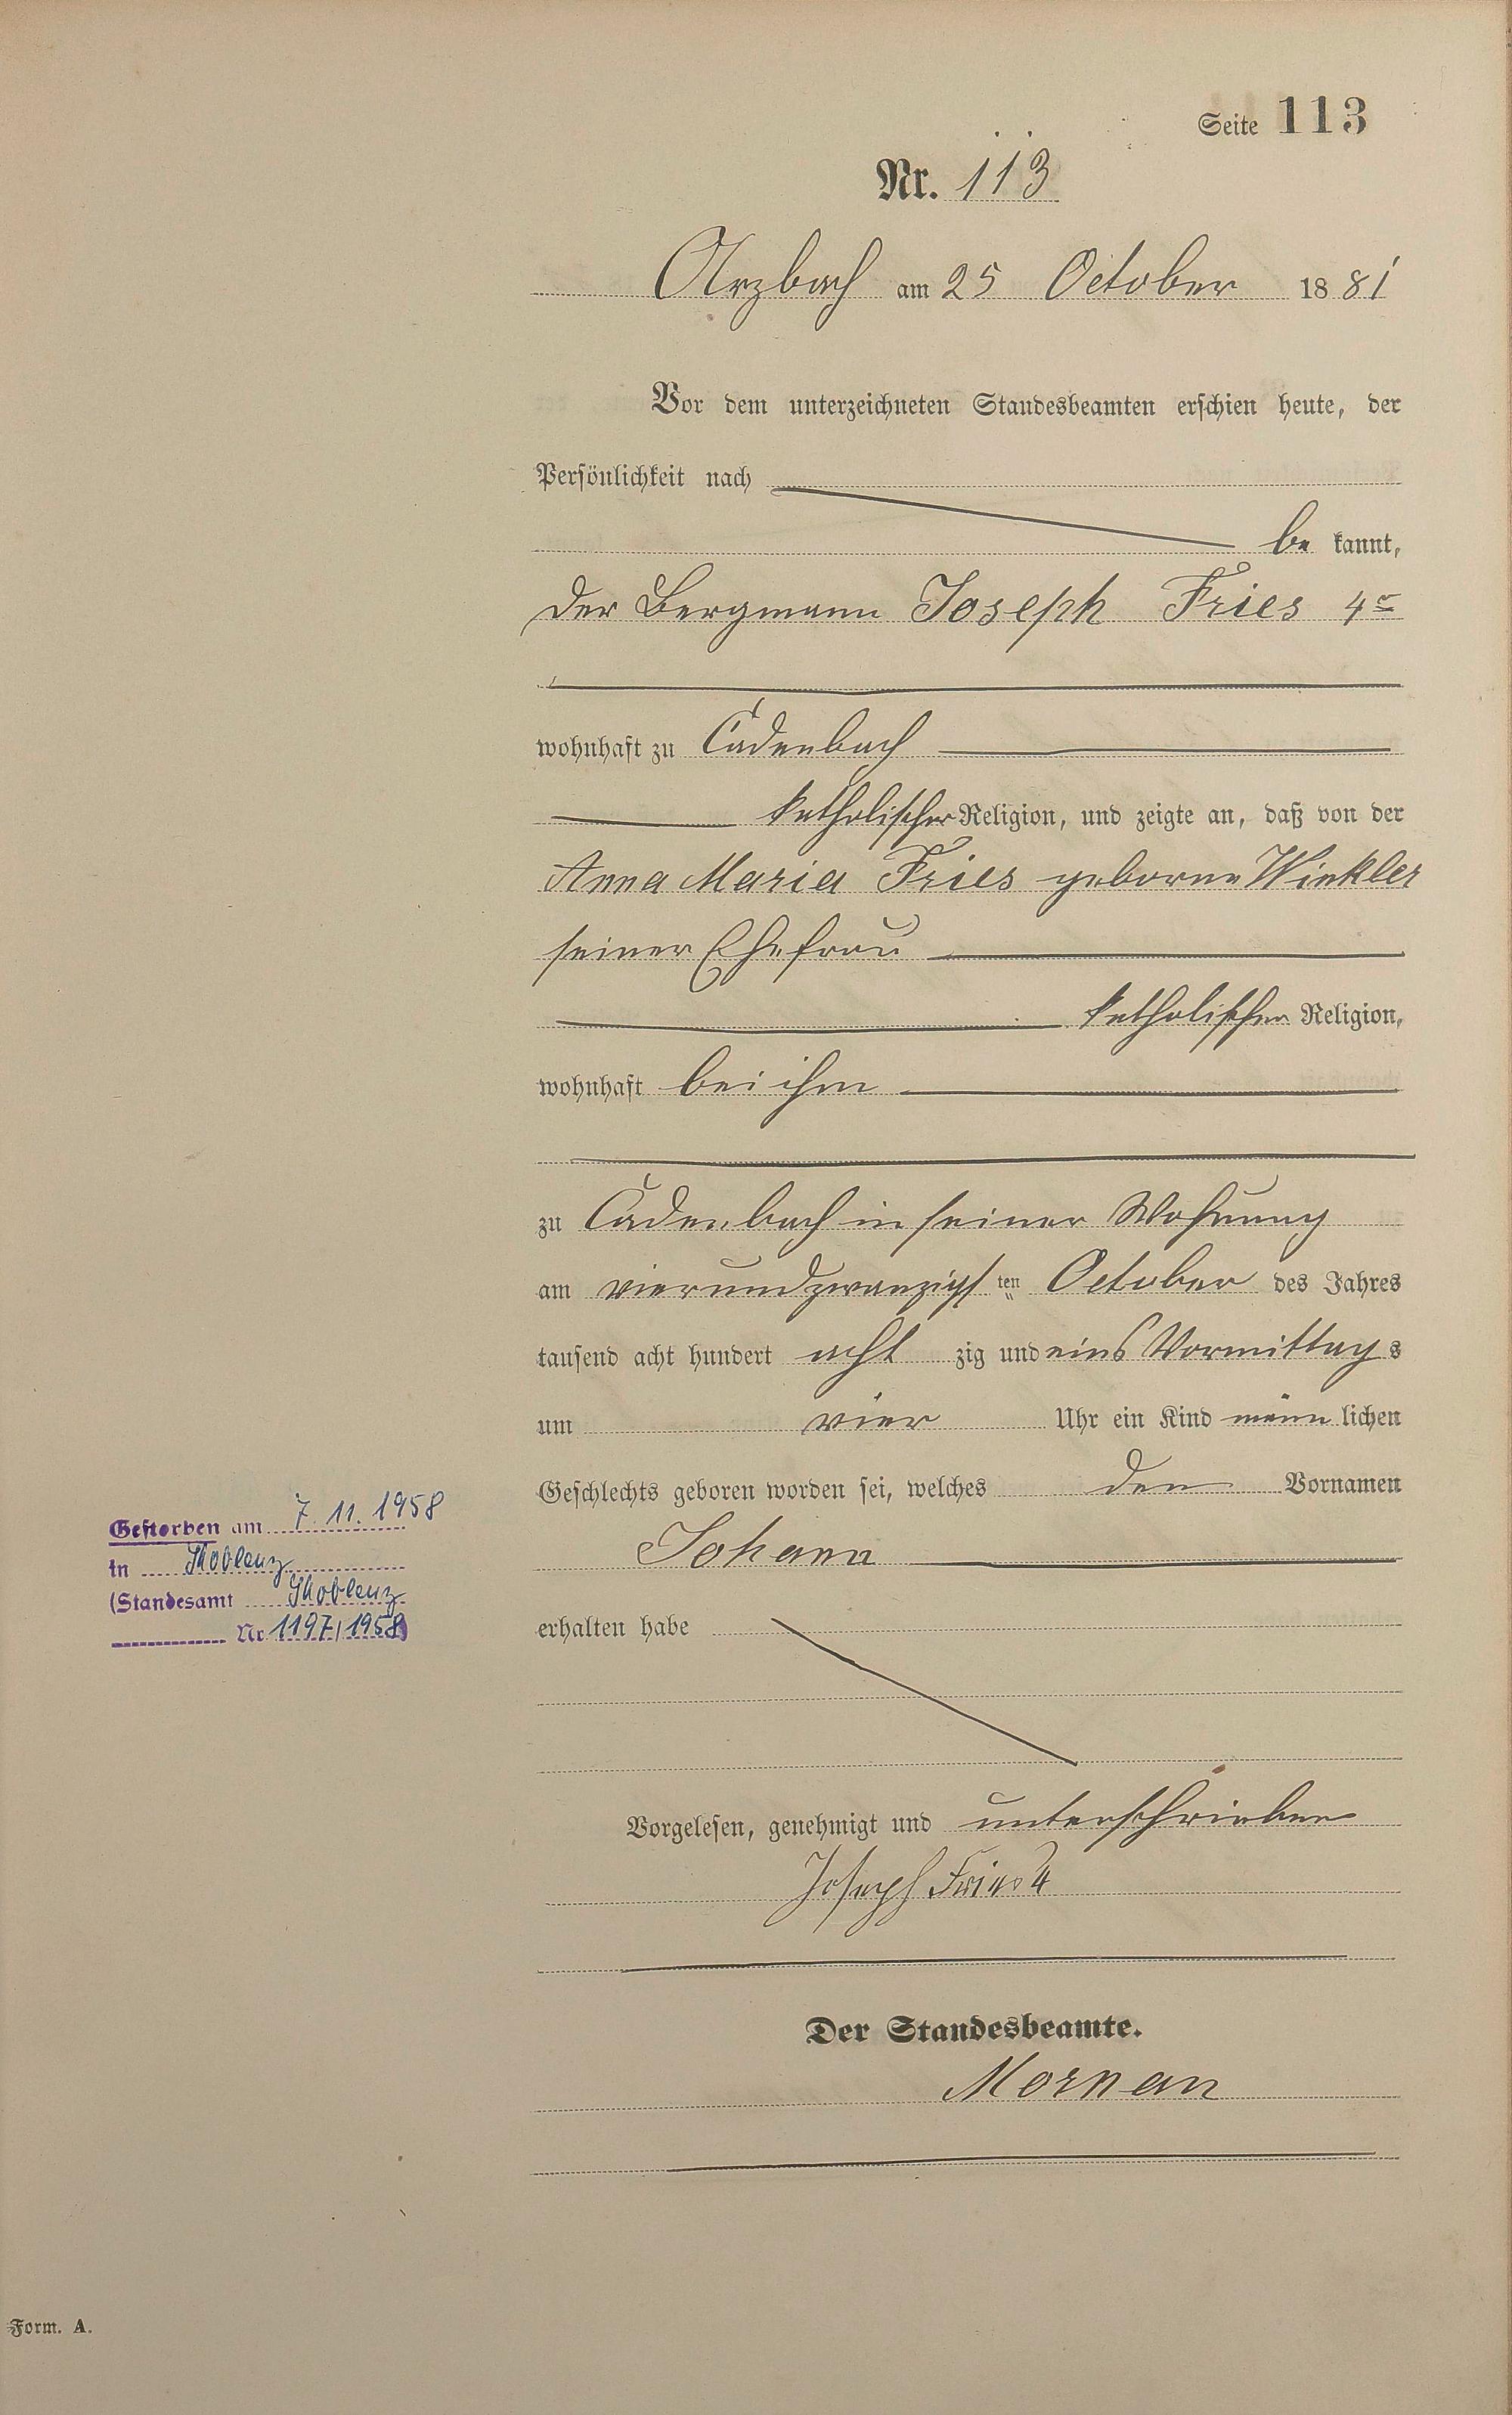 Seite 113
Nr. 113
Arzbach am 25 October 1881
Vor dem unterzeichneten Standesbeamten erschien heute, der
Persönlichkeit nach
be kannt,
der Bergmann Joseph Fries 4r
wohnhaft zu Cadenbach
katholischer Religion, und zeigte an, daß von der
Anna Maria Fries geborne Winkler
seiner Ehefrau
katholischer Religion,
wohnhaft bei ihm
zu Cadenbach in seiner Wohnung
am vierundzwanzigsten October des Jahres
tausend acht hundert acht zig und eins Vormittags
um vier Uhr ein Kind männ lichen
Geschlechts geboren worden sei, welches den Vornamen
Johann
erhalten habe
Vorgelesen, genehmigt und unterschrieben
Joseph Fries 4
Der Standesbeamte.
Mornan
Gestorben am 7. 11. 1958
in Koblenz
(Standesamt Koblenz
Nr. 1197/1958)
Form. A.